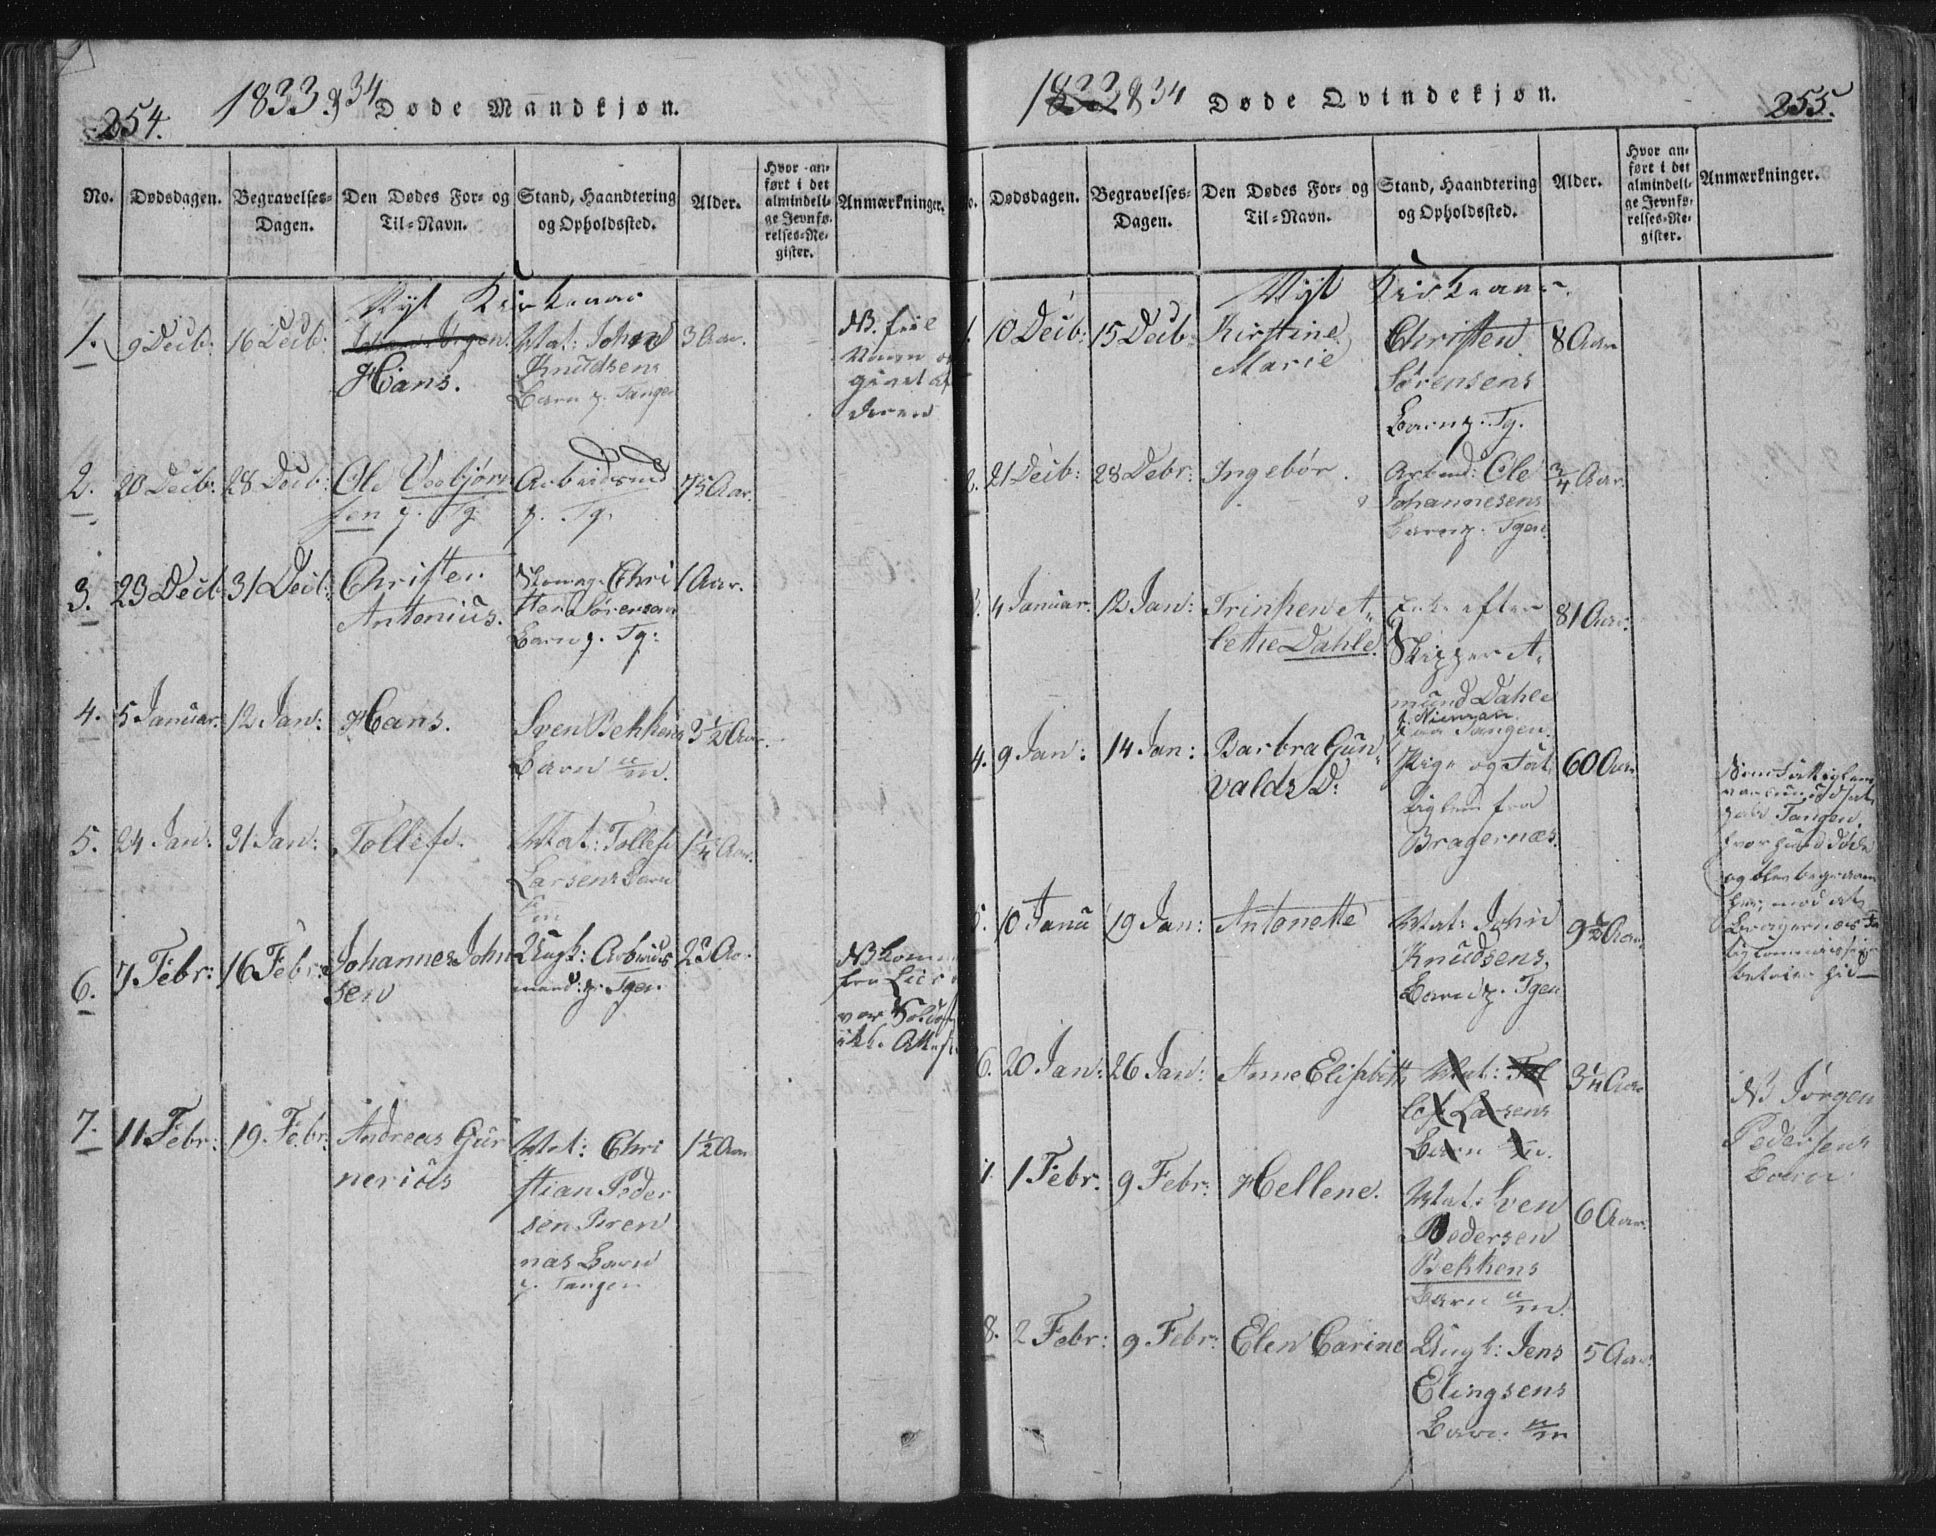 254.
1833 & 34
Døde Mandkjøn.
No.
Dødsdagen.
Begravelses-
Dagen.
Den Dødes For- og
Til-Navn.
Stand, Haandtering
og Opholdssted.
Alder.
Hvor an-
ført i det
almindeli-
ge Jevnfø-
relses-Re-
gister.
Anmærkninger.
Nyt Kirkeaar
1.
9 Decb:
16 Decb:
Hans.
Mat: John
Knudsens
Barn p. Tangen
3 Aar.
NB. feil
givet af
2.
20 Decb:
28 Decb:
Ole Veebjørn
sen p. Tg
Arbeidsmd
p. Tg.
75 Aar.
3.
23 Decb:
31 Decb:
Christen
Antonius.
Skomag. Chri
sten Sørensens
Barn p. Tg:
1 Aar.
4.
5 Januar.
12 Jan:
Hans.
Sven Bekkens
Barn
3½ Aar.
5.
24 Jan:
31 Jan:
Tollef.
Mat: Tollef
Larsens Barn
1¼ Aar.
6.
7 Febr:
16 Febr:
Johannes John
sen
Ungk: Arbeids
mand: p. Tgen
23 Aar
NB kom
fra Lier
var Soldat
ikke Attest
7.
11 Febr:
19. Febr:
Andreas Gun
nerius
Mat: Chri
stian Peder
sen Bren
nas Barn
p. Tangen
1½ Aar
1833 & 34
Døde Qvindekjøn.
255.
No.
Dødsdagen.
Begravelses-
Dagen.
Den Dødes For- og
Til-Navn.
Stand, Haandtering
og Opholdssted.
Alder.
Hvor an-
ført i det
almindeli-
ge Jevnfø-
relses-Re-
gister.
Anmærkninger.
Nyt Kirkeaar.
1.
10 Decb:
15 Decb:
Kirstine
Marie
Christen
Sørensens
Barn p. Tg.
8 Aar
2.
21 Decb:
28 Debr:
Ingebør.
Arbmd: Ole
Johannesens
Barn p. Tgen
¾ Aar.
3.
4 Januar.
12 Jan:
Trinken A
lethe Dahle.
Enke efter
Skipper A
mund Dahle
paa Tangen.
81 Aar.
4.
9 Jan:
14 Jan:
Barbra Gun
valds D:
Pige og Fat
tiglem fra
Bragernæs.
60 Aar
Som Fattiglem
var hun udsat
paa Tangen,
hvor hun døde
og blev begraven
her, mod at
Bragernæs Fat
tigcommission
5.
10 Janu
19 Jan:
Antonette
Mat: John
Knudsens
Barn p. Tgen
9½ Aar
6.
20 Jan:
26 Jan:
Anne Elisabeth
Mat: Tol
lef Larsens
Barn
3¼ Aar
NB Jørgen
Pedersens
Barn
7.
1 Febr.
9 Febr:
Hellene.
Mat: Sven
Pedersen
Bekkens
Barn
6 Aar.
8.
2 Febr:
9 Febr:
Elen Carine
Ungk: Jens
Elingsens
Barn
5 Aar.